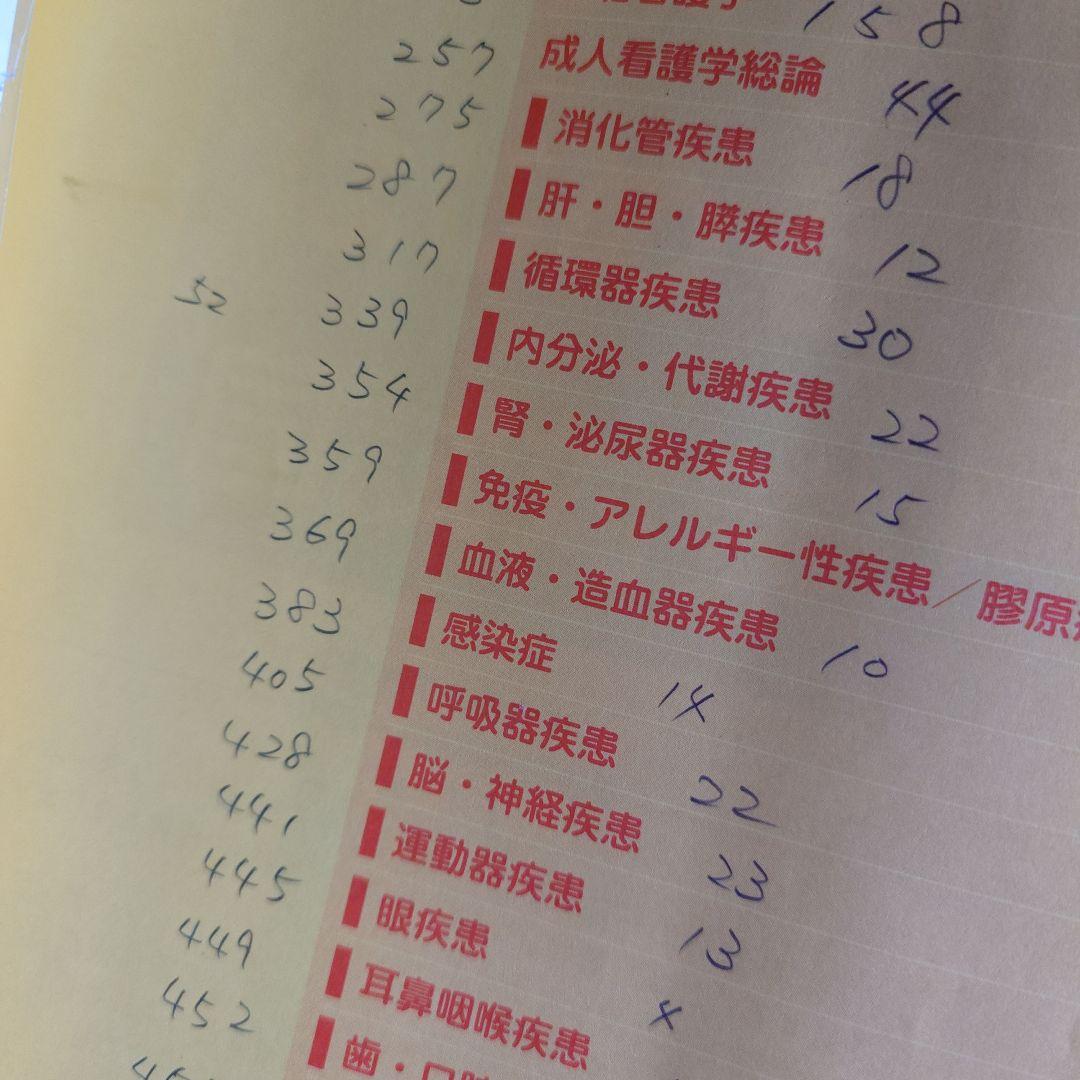 158
257 成人看護学総論 44
275 消化管疾患 18
287 肝・胆・膵疾患 12
317 循環器疾患 30
52 339 内分泌・代謝疾患 22
354 腎・泌尿器疾患 15
359 免疫・アレルギー性疾患／膠原
369 血液・造血器疾患 10
383 感染症 14
405 呼吸器疾患 22
428 脳・神経疾患 23
441 運動器疾患 13
445 眼疾患 4
449 耳鼻咽喉疾患
452 歯・口腔